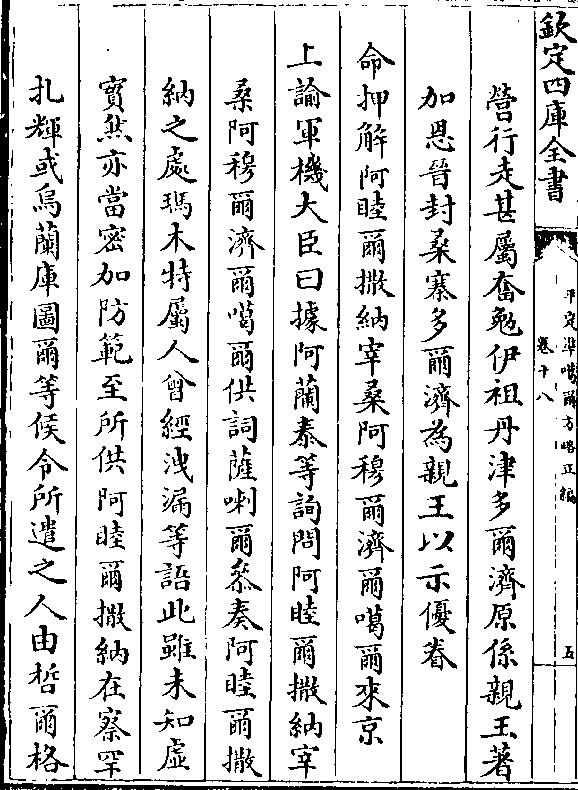 欽定四庫全書
平定準噶爾方略正編
卷十八
五
營行走甚屬奮勉伊祖丹津多爾濟原係親王著
加恩晉封桑寨多爾濟為親王以示優眷
命押解阿睦爾撒納宰桑阿穆爾濟爾噶爾來京
上諭軍機大臣曰據阿蘭泰等訽問阿睦爾撒納宰
桑阿穆爾濟爾噶爾供詞薩喇爾叅奏阿睦爾撒
納之處瑪木特屬人曾經洩漏等語此雖未知虛
實然亦當密加防範至所供阿睦爾撒納在察罕
扎輝或烏蘭庫圖爾等候令所遣之人由哲爾格